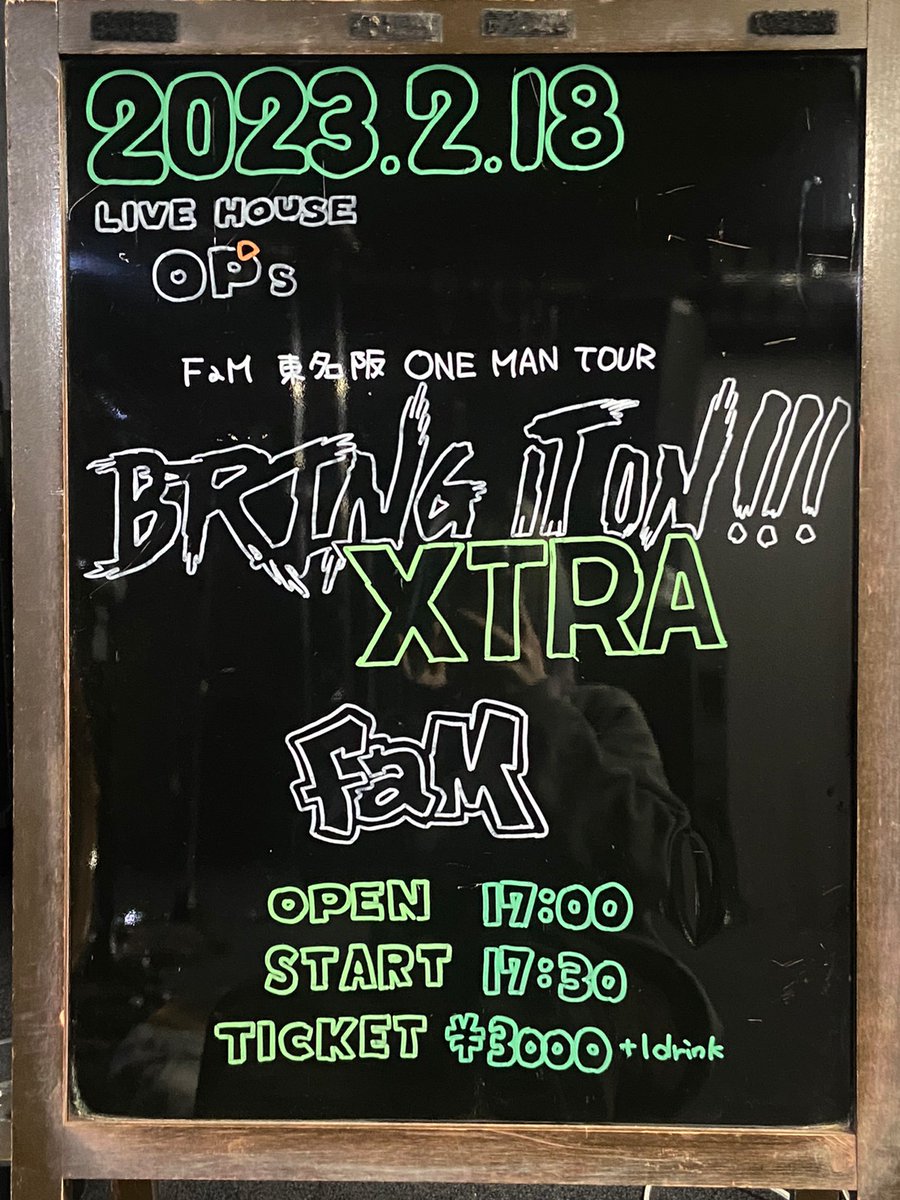 2023.2.18
LIVE HOUSE
OPs
FaM 東名阪 ONE MAN TOUR
BRING IT ON!!!
XTRA
FaM
OPEN 17:00
START 17:30
TICKET ¥3000 +1drink